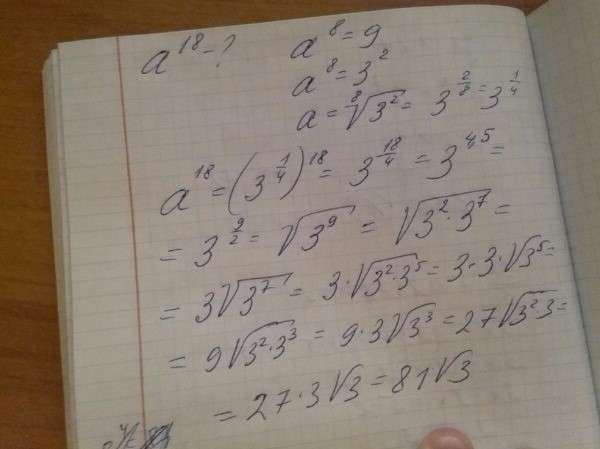 a^18 - ?
a^8 = 9
a^8 = 3^2
a = ⁸√3^2 = 3^(2/8) = 3^(1/4)
a^18 = (3^(1/4))^18 = 3^(18/4) = 3^4,5 =
= 3^(9/2) = √3^9 = √3^2·3^7 =
= 3√3^7 = 3·√3^2·3^5 = 3·3·√3^5 =
= 9√3^2·3^3 = 9·3√3^3 = 27√3^2·3 =
= 27·3√3 = 81√3